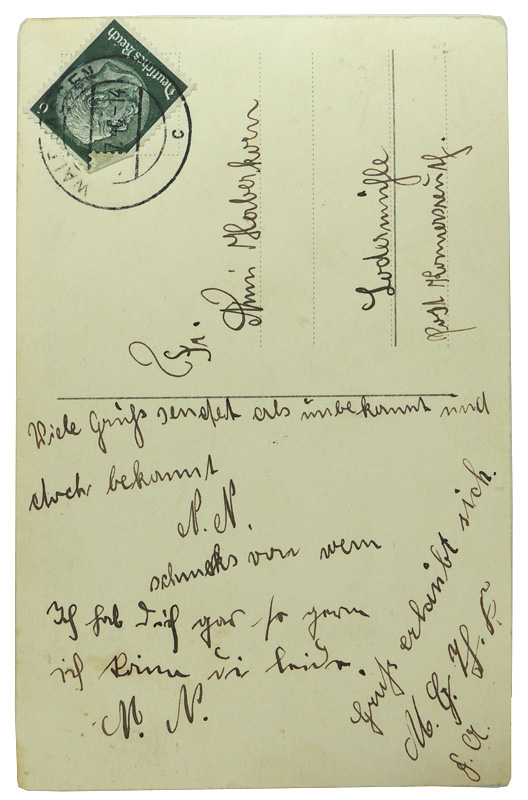 Deutsches Reich
C
Frl.
Anni Haberkorn
Lodermühle
Post Konnersreuth.
Viele Grüße sendet als unbekannt und
doch bekannt
N. N.
schmeks von wem
Ich hab dich gar so gern
ich kann di leide.
M. N.
Gruß erlaubt sich.